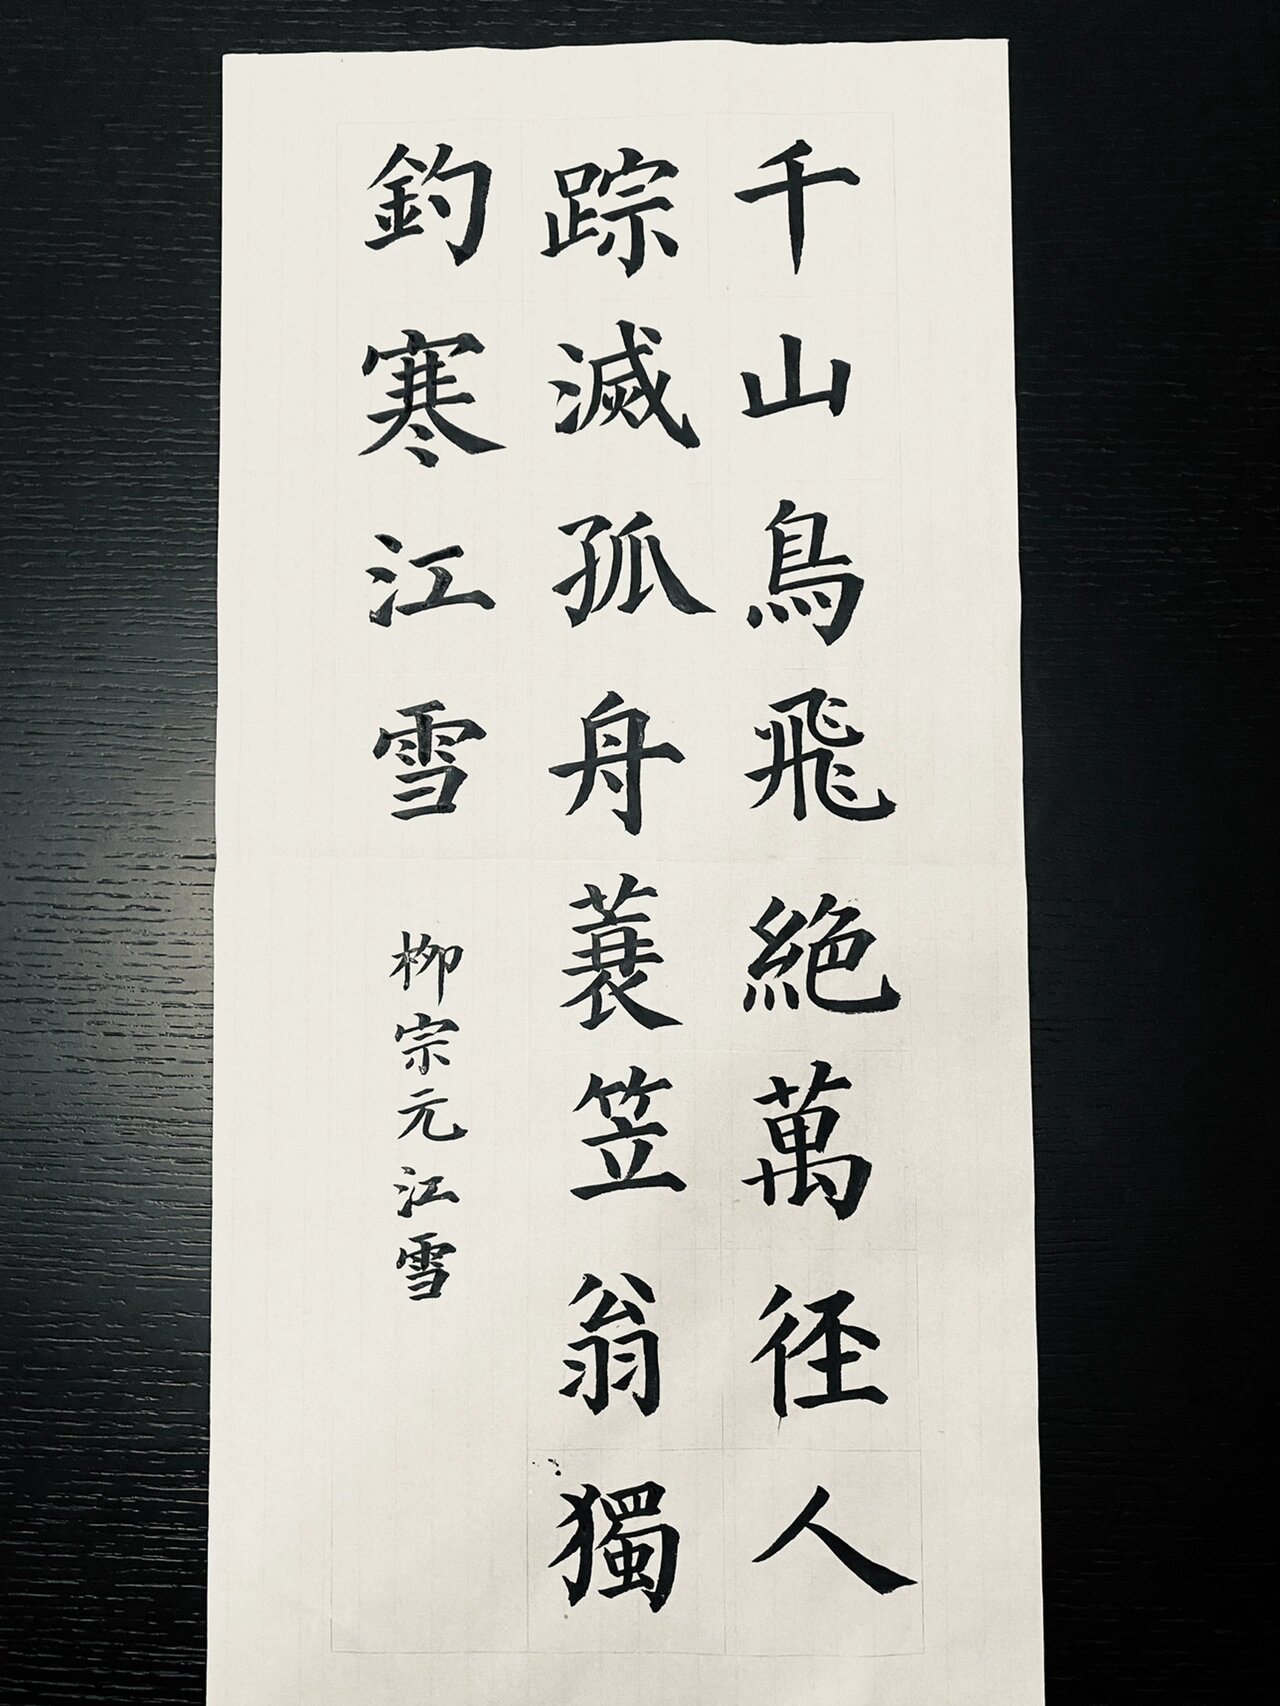 千山鳥飛絶萬徑人
踪滅孤舟蓑笠翁獨
釣寒江雪
柳宗元江雪